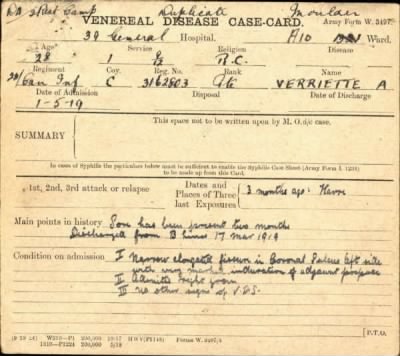 Duplicate Moulder
VENEREAL DISEASE CASE-CARD. Army Form W. 3497
39 General Hospital. A10 Ward.
Age Service Religion Disease
28 1 R.C.
Regiment Coy. Number Rank Name
Can Inf C 3162803 Pte VERRIETTE A
Date of Admission Disposal Date of Disposal
1-5-19
This space not to be written upon by M.O. i/c case.
SUMMARY
In cases of Syphilis the particulars below must be sufficient to enable the Syphilis Case Sheet (Army Form I. 1238)
to be made up from this Card.
1st, 2nd, 3rd attack or relapse
Dates and Places of Three last Exposures
3 months ago: Havre
Main points in history Sore has been present two months
Discharged from B lines 17 Mar 1919
Condition on admission I Narrow elongated fissure in Coronal Sulcus left side
with very marked induration of adjacent prepuce
II Adenitis right groin
III No other signs of V.D.S.